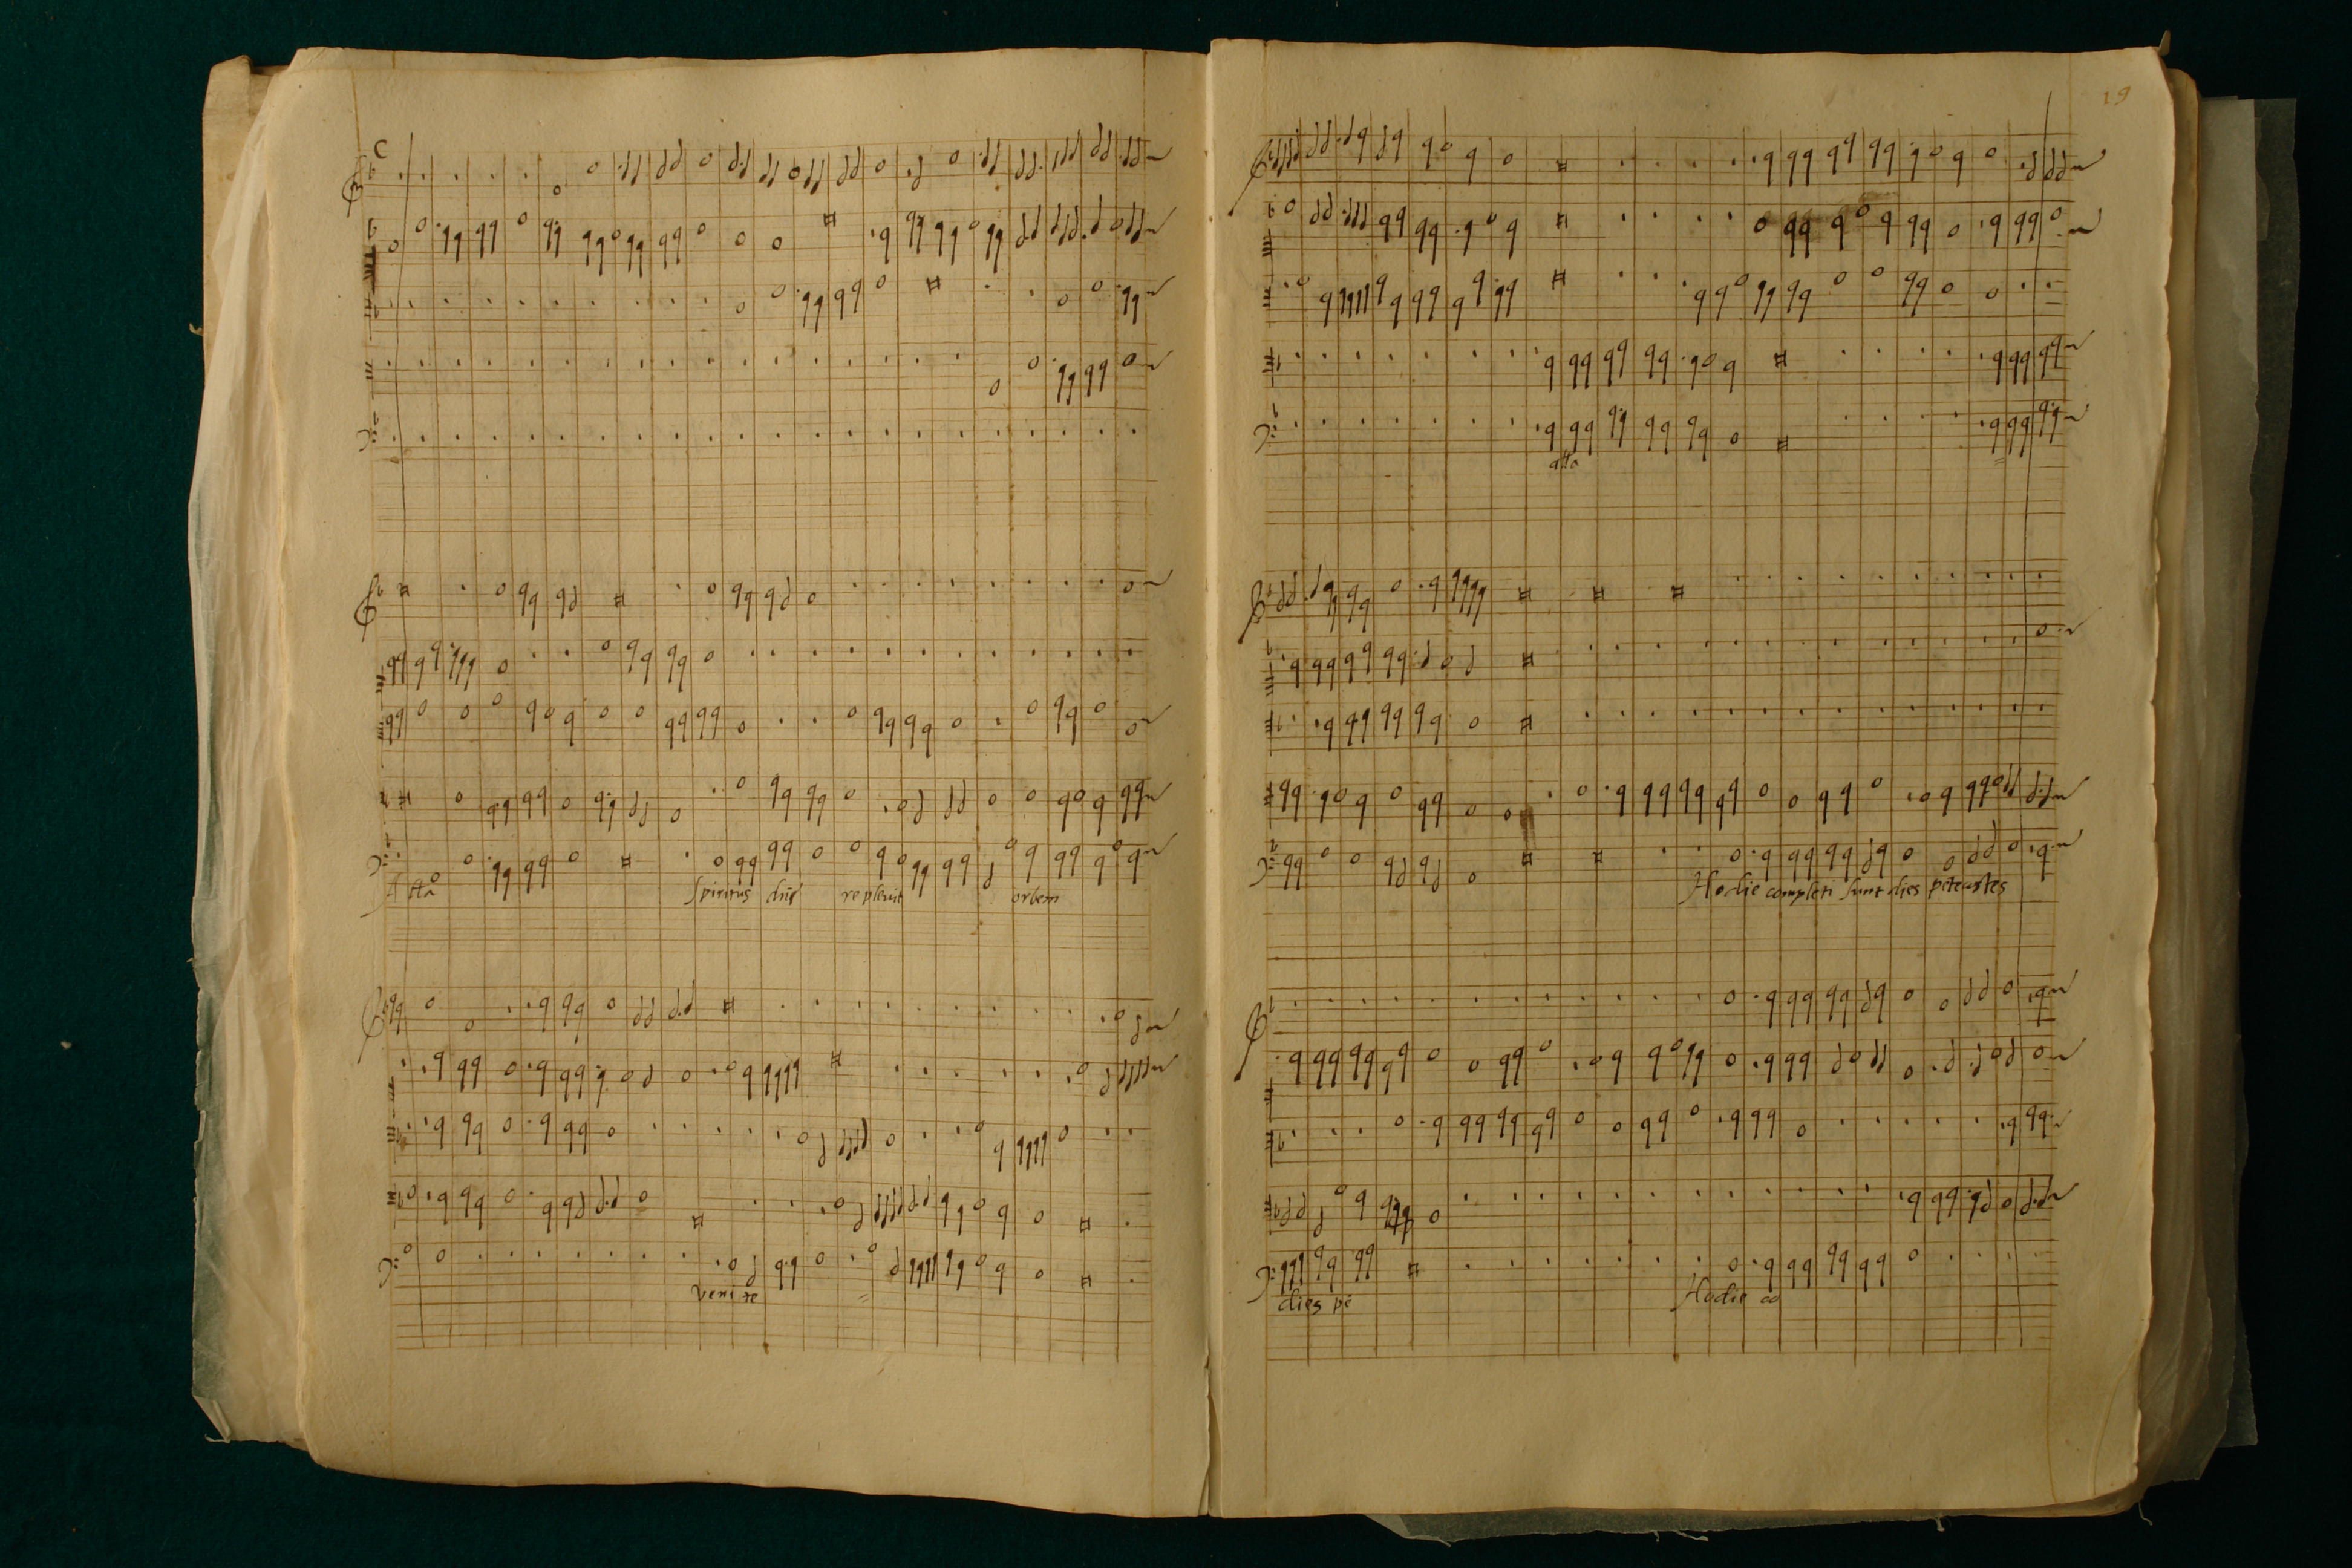 Spiritus dñi repleuit orbem
Venite
19
alla
Hodie completi sunt dies petecostes
dies pe
Hodie co